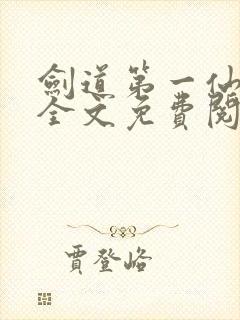 劍道第一仙
全文免費閱
賈登峪